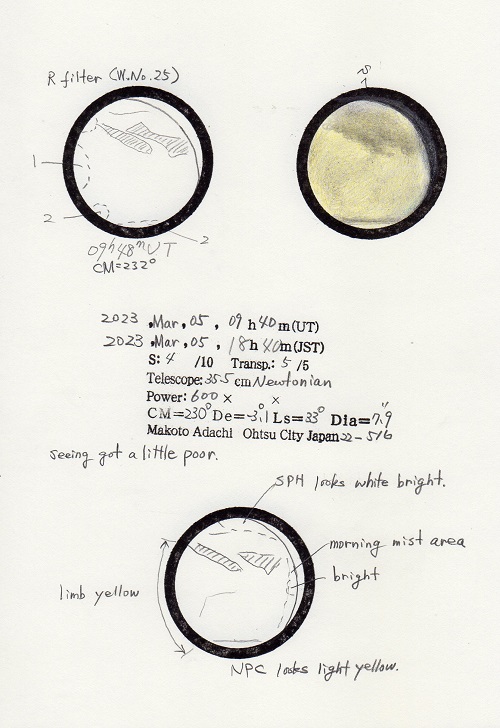 R filter (W.No.25)
S
1
2
2
09h48mUT
CM=232°
2023 ,Mar, 05 , 09 h 40 m (UT)
2023 ,Mar, 05 , 18 h 40 m (JST)
S: 4 /10 Transp.: 5 /5
Telescope: 35.5 cm Newtonian
Power: 600 × ×
CM=230° De=-3°.1 Ls=33° Dia=7".9
Makoto Adachi Ohtsu City Japan 22-516
seeing got a little poor.
SPH looks white bright.
morning mist area
bright
limb yellow
NPC looks light yellow.